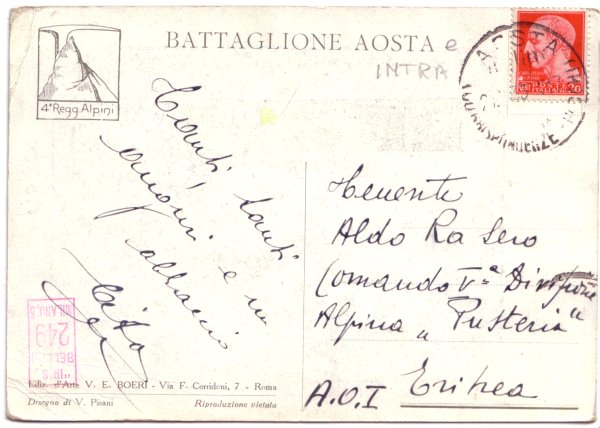 BATTAGLIONE AOSTA e
INTRA
4° Regg. Alpini
AOSTA
CORRISPONDENZE
POSTE ITALIANE
20
Tanti, tanti
auguri e un
abbraccio
Tenente
Aldo Ra Sero
Comando Vª Divisione
Alpina „ Pusteria "
A.O.I Eritrea
249
MILANO, 5
Ediz. d'Arte V. E. BOERI - Via F. Corridoni, 7 - Roma
Disegno di V. Pisani Riproduzione vietata